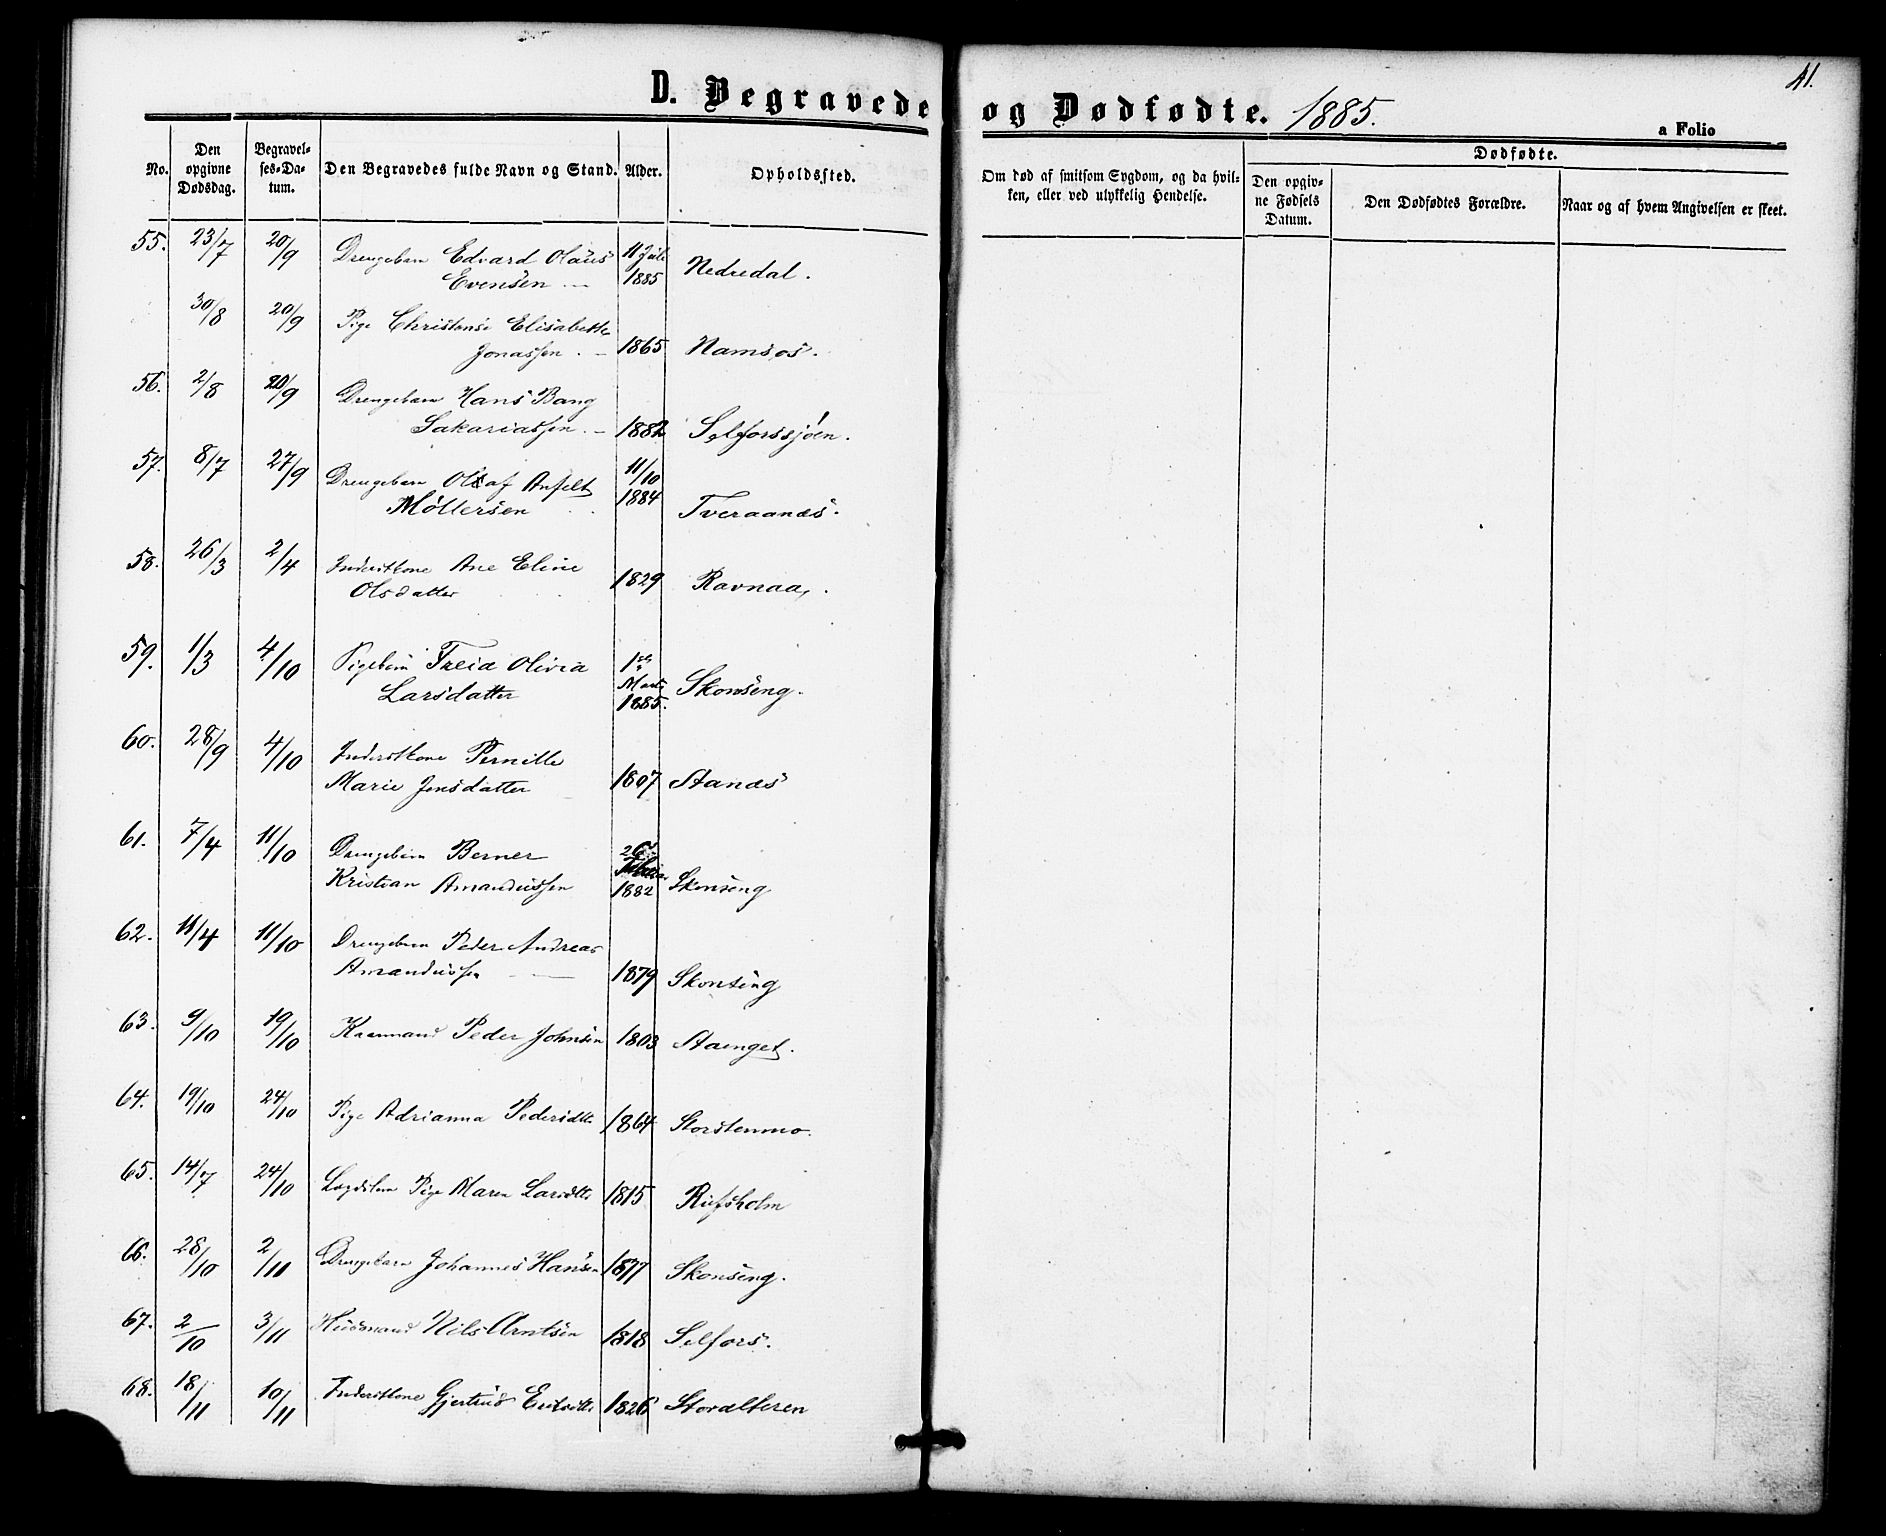 D. Begravede og Dødfødte. 1885.
41.
a Folio
No.
Den opgivne Dødsdag.
Begravel-ses-Da-tum.
Den Begravedes fulde Navn og Stand.
Alder.
Opholdssted.
Om død af smitsom Sygdom, og da hvil-
ken, eller ved ulykkelig Hendelse.
Dødfødte.
Den opgiv-
ne Fødsels
Datum.
Den Dødfødtes Forældre.
Naar og af hvem Angivelsen er skeet.
55. 23/7 20/9 Drengebarn Edvard Olaus 11 Juli
Evensen 1885 Nedredal.
30/8 20/9 Pige Christense Elisabette
Jonassen . - 1865 Namsos.
56. 2/8 20/9 Drengebarn Hans Bang
Sakariassen . - 1882 Selforssjøen.
57. 8/7 27/9 Drengebarn Olaf Anselt 11/10
Møllersen 1884 Tveraanæs.
58. 26/3 2/4 Inderstkone Ane Eline
Olsdatter 1829 Ravnaa.
59. 1/3 4/10 Pigebarn Freid Olivia 1ste
Larsdatter Marts 1885. Skonseng.
60. 28/9 4/10 Inderstkone Pernille
Marie Jensdatter 1807 Stanæs
61. 7/4 11/10 Drengebarn Berner 26.
Kristian Amandussen 1882 Skonseng
62. 11/4 11/10 Drengebarn Peder Andreas
Amandussen 1879 Skonseng
63. 9/10 19/10 Kaarmand Peder Johnsen 1803 Staenget.
64. 19/10 24/10 Pige Adrianna Pedersdtr 1864 Storstenmo.
65. 14/7 24/10 Lægdslem Pige Maren Larsdtr 1815 Rufsholm
66. 28/10 2/11 Drengebarn Johannes Hansen 1877 Skonseng.
67. 2/10 3/11 Huusmand Nils Arntsen 1818 Selfors.
68. 18/11 10/11 Inderstkone Gjertrud 1826 Storalteren